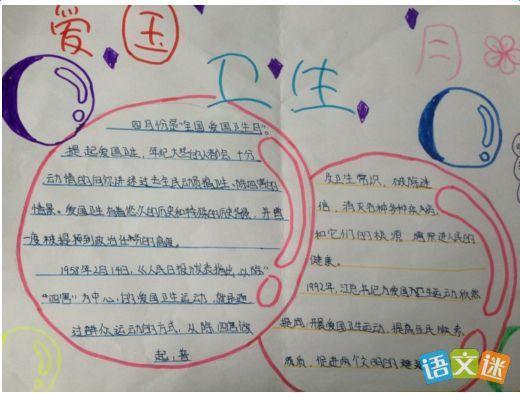 爱国
卫生
月
四月份是"全国爱国卫生月"。
提起爱国卫生,年纪大些的人都会十分
动情的回忆讲述过去全民动员搞卫生、除四害的
情景。爱国卫生有着悠久的历史和特殊的历史,并曾
一度被提到政治的高度。
1958年2月14日,人民日报发表指出,以除
"四害"为中心的爱国卫生运动,就是通
过群众运动的方式,从除四害做
起,普
及卫生常识,破除迷
信,消灭各种多种疾病
和它们的根源,增进人民的
健康。
1992年,江总书记为爱国卫生运动欣然
提词:开展爱国卫生运动,提高全民
素质,促进两个文明的建
语文迷